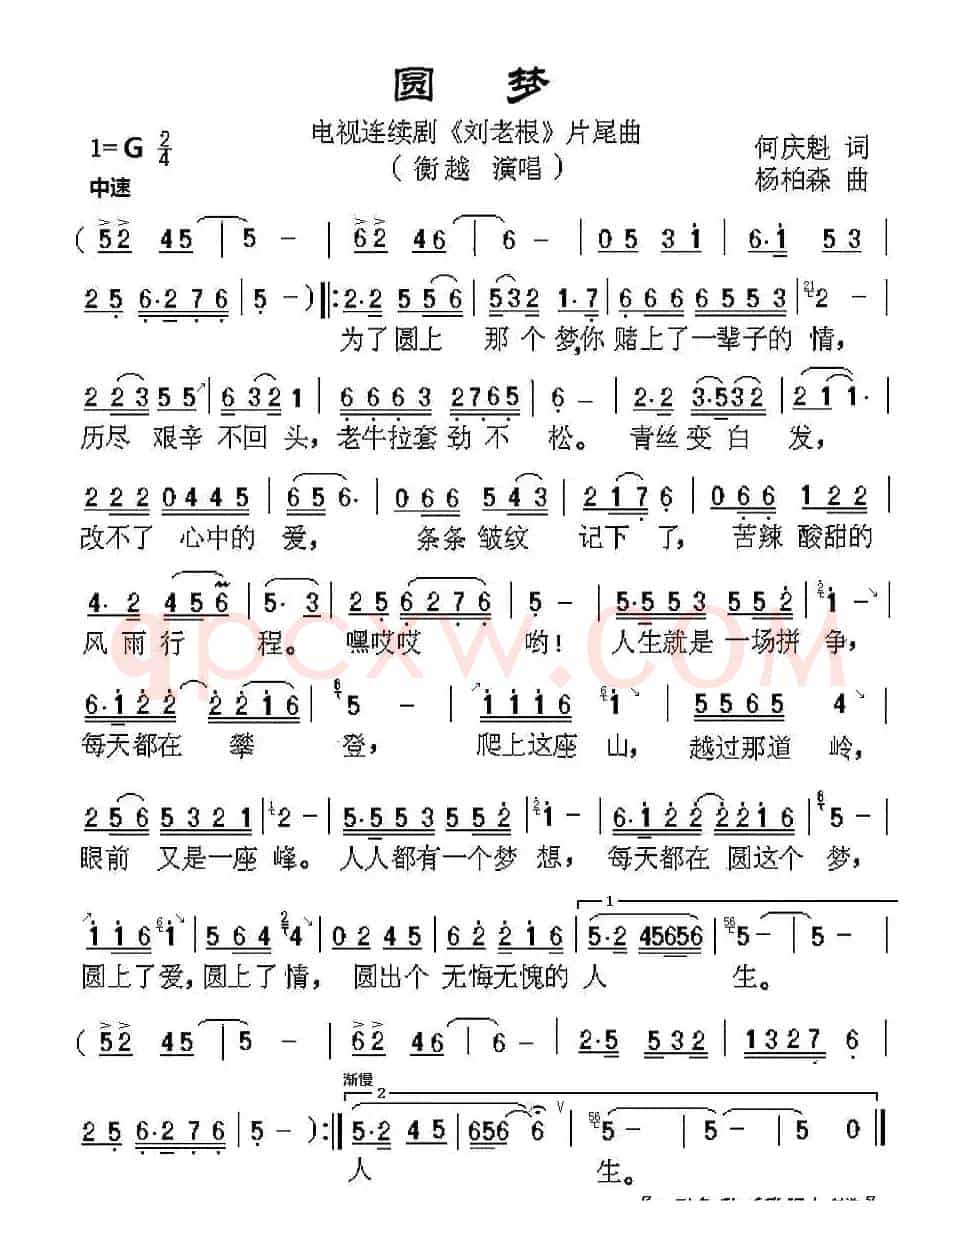 圆 梦
电视连续剧《刘老根》片尾曲
1=G 2/4
（衡越 演唱）
何庆魁 词
杨柏森 曲
中速
( 52 45 | 5 - | 62 46 | 6 - | 05 31 | 6·1 53 |
25 6·276 | 5 - ) ‖: 2·2 556 | 532 1·7 | 6666 6553 | 2 - |
为了圆上 那个梦,你 赌上了一辈子的 情,
223 55 | 632 1 | 6663 2765 | 6 - | 2·2 3·532 | 21 1· |
历尽 艰辛 不回 头, 老牛拉套 劲 不 松。 青丝 变 白 发,
222 0445 | 656· | 066 543 | 2176 | 066 122 |
改不了 心中的 爱, 条条 皱纹 记下 了, 苦辣 酸甜的
4·2 456 | 5·3 | 25 6276 | 5 - | 5·553 552 | 1 - |
风雨行 程。 嘿哎哎 哟! 人生就是 一场拼 争,
6·122 2216 | 5 - | 1116 1 | 5565 4 |
每天都在 攀 登, 爬上这座 山, 越过那道 岭,
256 5321 | 2 - | 5·553 552 | 1 - | 6·122 2216 | 5 - |
眼前 又是一座 峰。 人人都有一个梦 想, 每天都在 圆这个 梦,
1
116 1 | 564 4 | 02 45 | 622 216 | 5·2 45656 | 5 - | 5 - |
圆上了爱, 圆上了情, 圆出个 无悔无愧的 人 生。
( 52 45 | 5 - | 62 46 | 6 - | 2·5 532 | 1327 6 |
渐慢
2
25 6·276 | 5 - ) :‖ 5·2 45 | 656 6 | 5 - | 5 - | 5 0 ‖
人 生。
qpcxw.COM